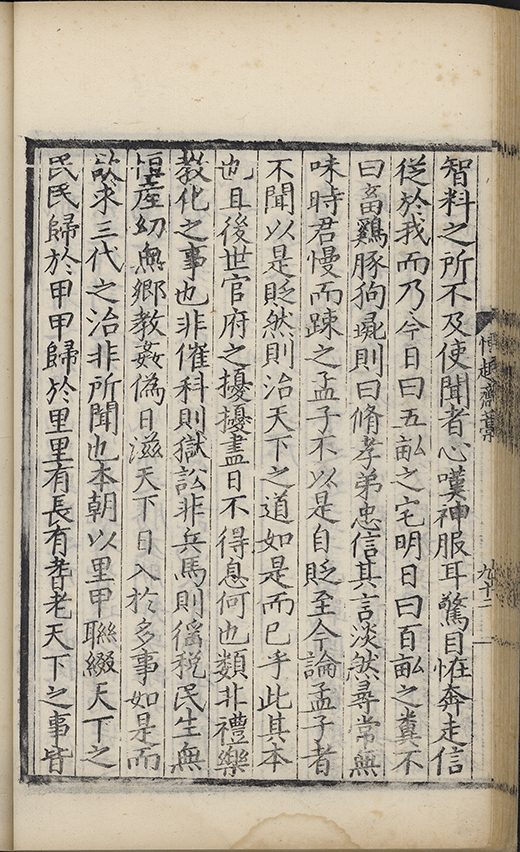 智料之所不及使聞者心嘆神服耳驚目怪奔走信
從於我而乃今日曰五畝之宅明日曰百畝之糞不
曰畜鷄豚狗彘則曰脩孝弟忠信其言淡然尋常無
味時君慢而踈之孟子不以是自貶至今論孟子者
不聞以是貶然則治天下之道如是而已乎此其本
也且後世官府之擾擾盡日不得息何也類非禮樂
教化之事也非催科則獄訟非兵馬則徭稅民生無
恒産幼無鄉教姦偽日滋天下日入於多事如是而
欲求三代之治非所聞也本朝以里甲聯綴天下之
民民歸於甲甲歸於里里有長有耆老天下之事皆
齋藁
九十二